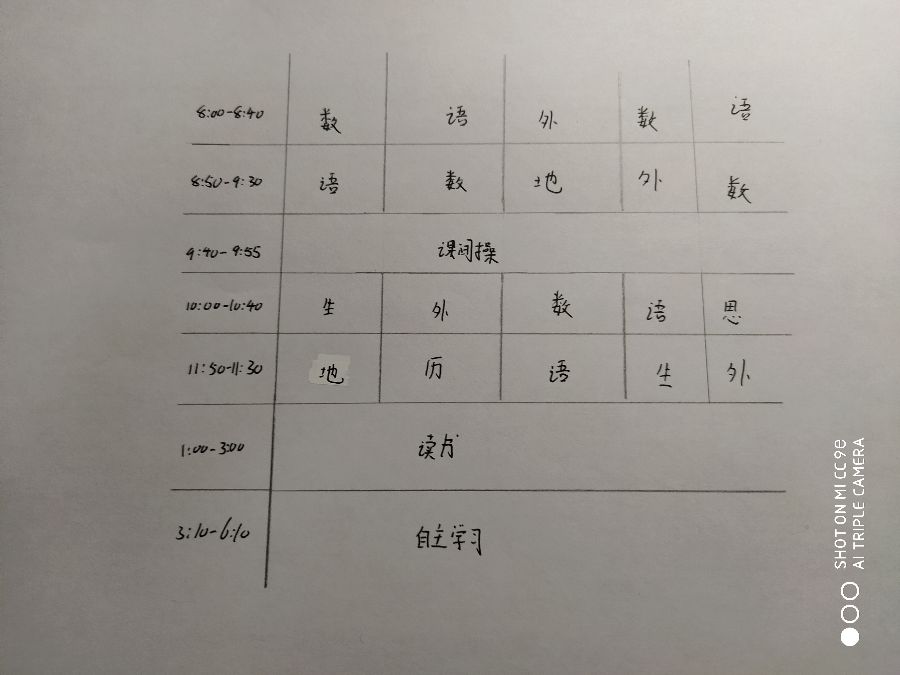 8:00-8:40 数 语 外 数 语
8:50-9:30 语 数 地 外 数
9:40-9:55 课间操
10:00-10:40 生 外 数 语 思
11:50-11:30 地 历 语 生 外
1:00-3:00 读书
3:10-6:10 自主学习
SHOT ON MI CC 9e
AI TRIPLE CAMERA